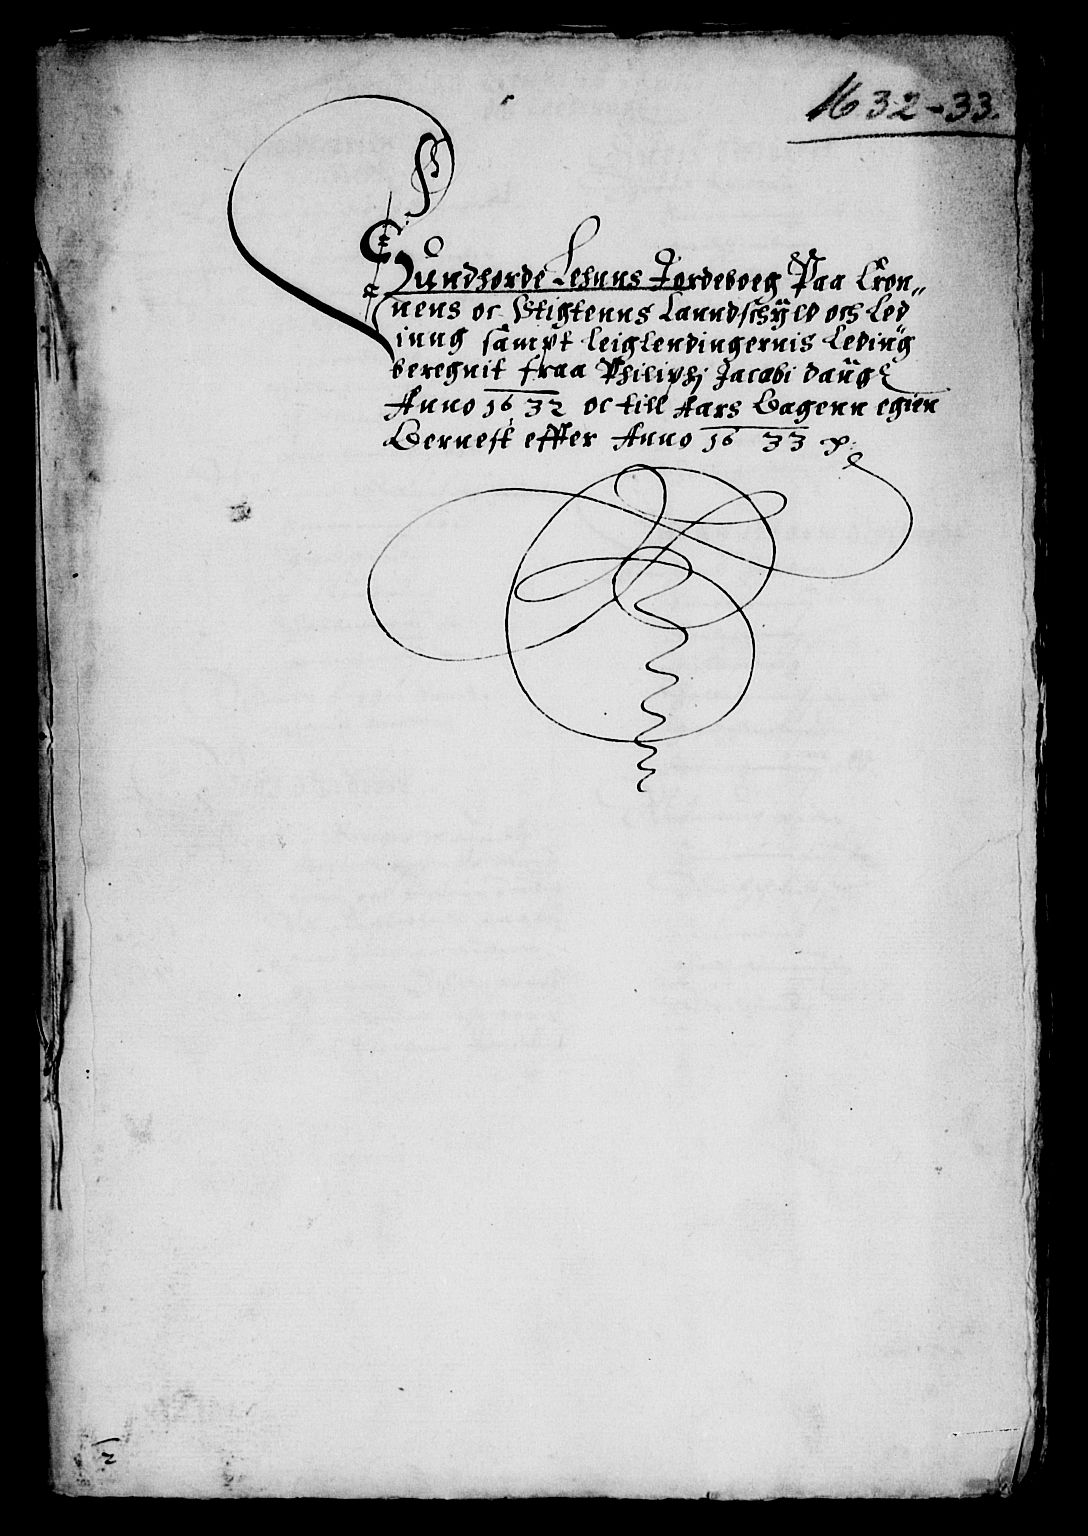 1632-33.
Sundhorde Lehnns Jordeboeg Paa Cron„
nens oc Stigtenns Lanndschÿld och Led
inng sampt leiglendingernis Leding
beregnit fraa Philiphj Jacobi daug
Anno 1632 oc till Aars Dagenn egien
Dernest effter Anno 1633
2